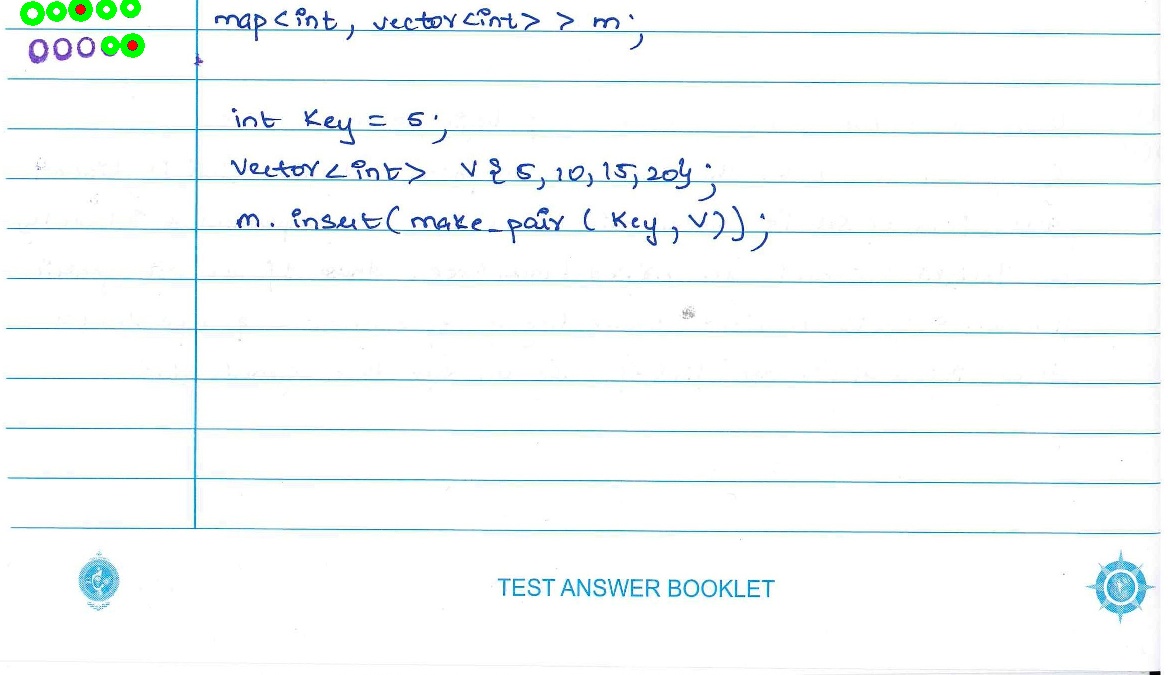 map<int, vector<int> > m;
int key = 5;
vector<int> v{5, 10, 15, 20};
m. insert(make_pair (key, v));
TEST ANSWER BOOKLET